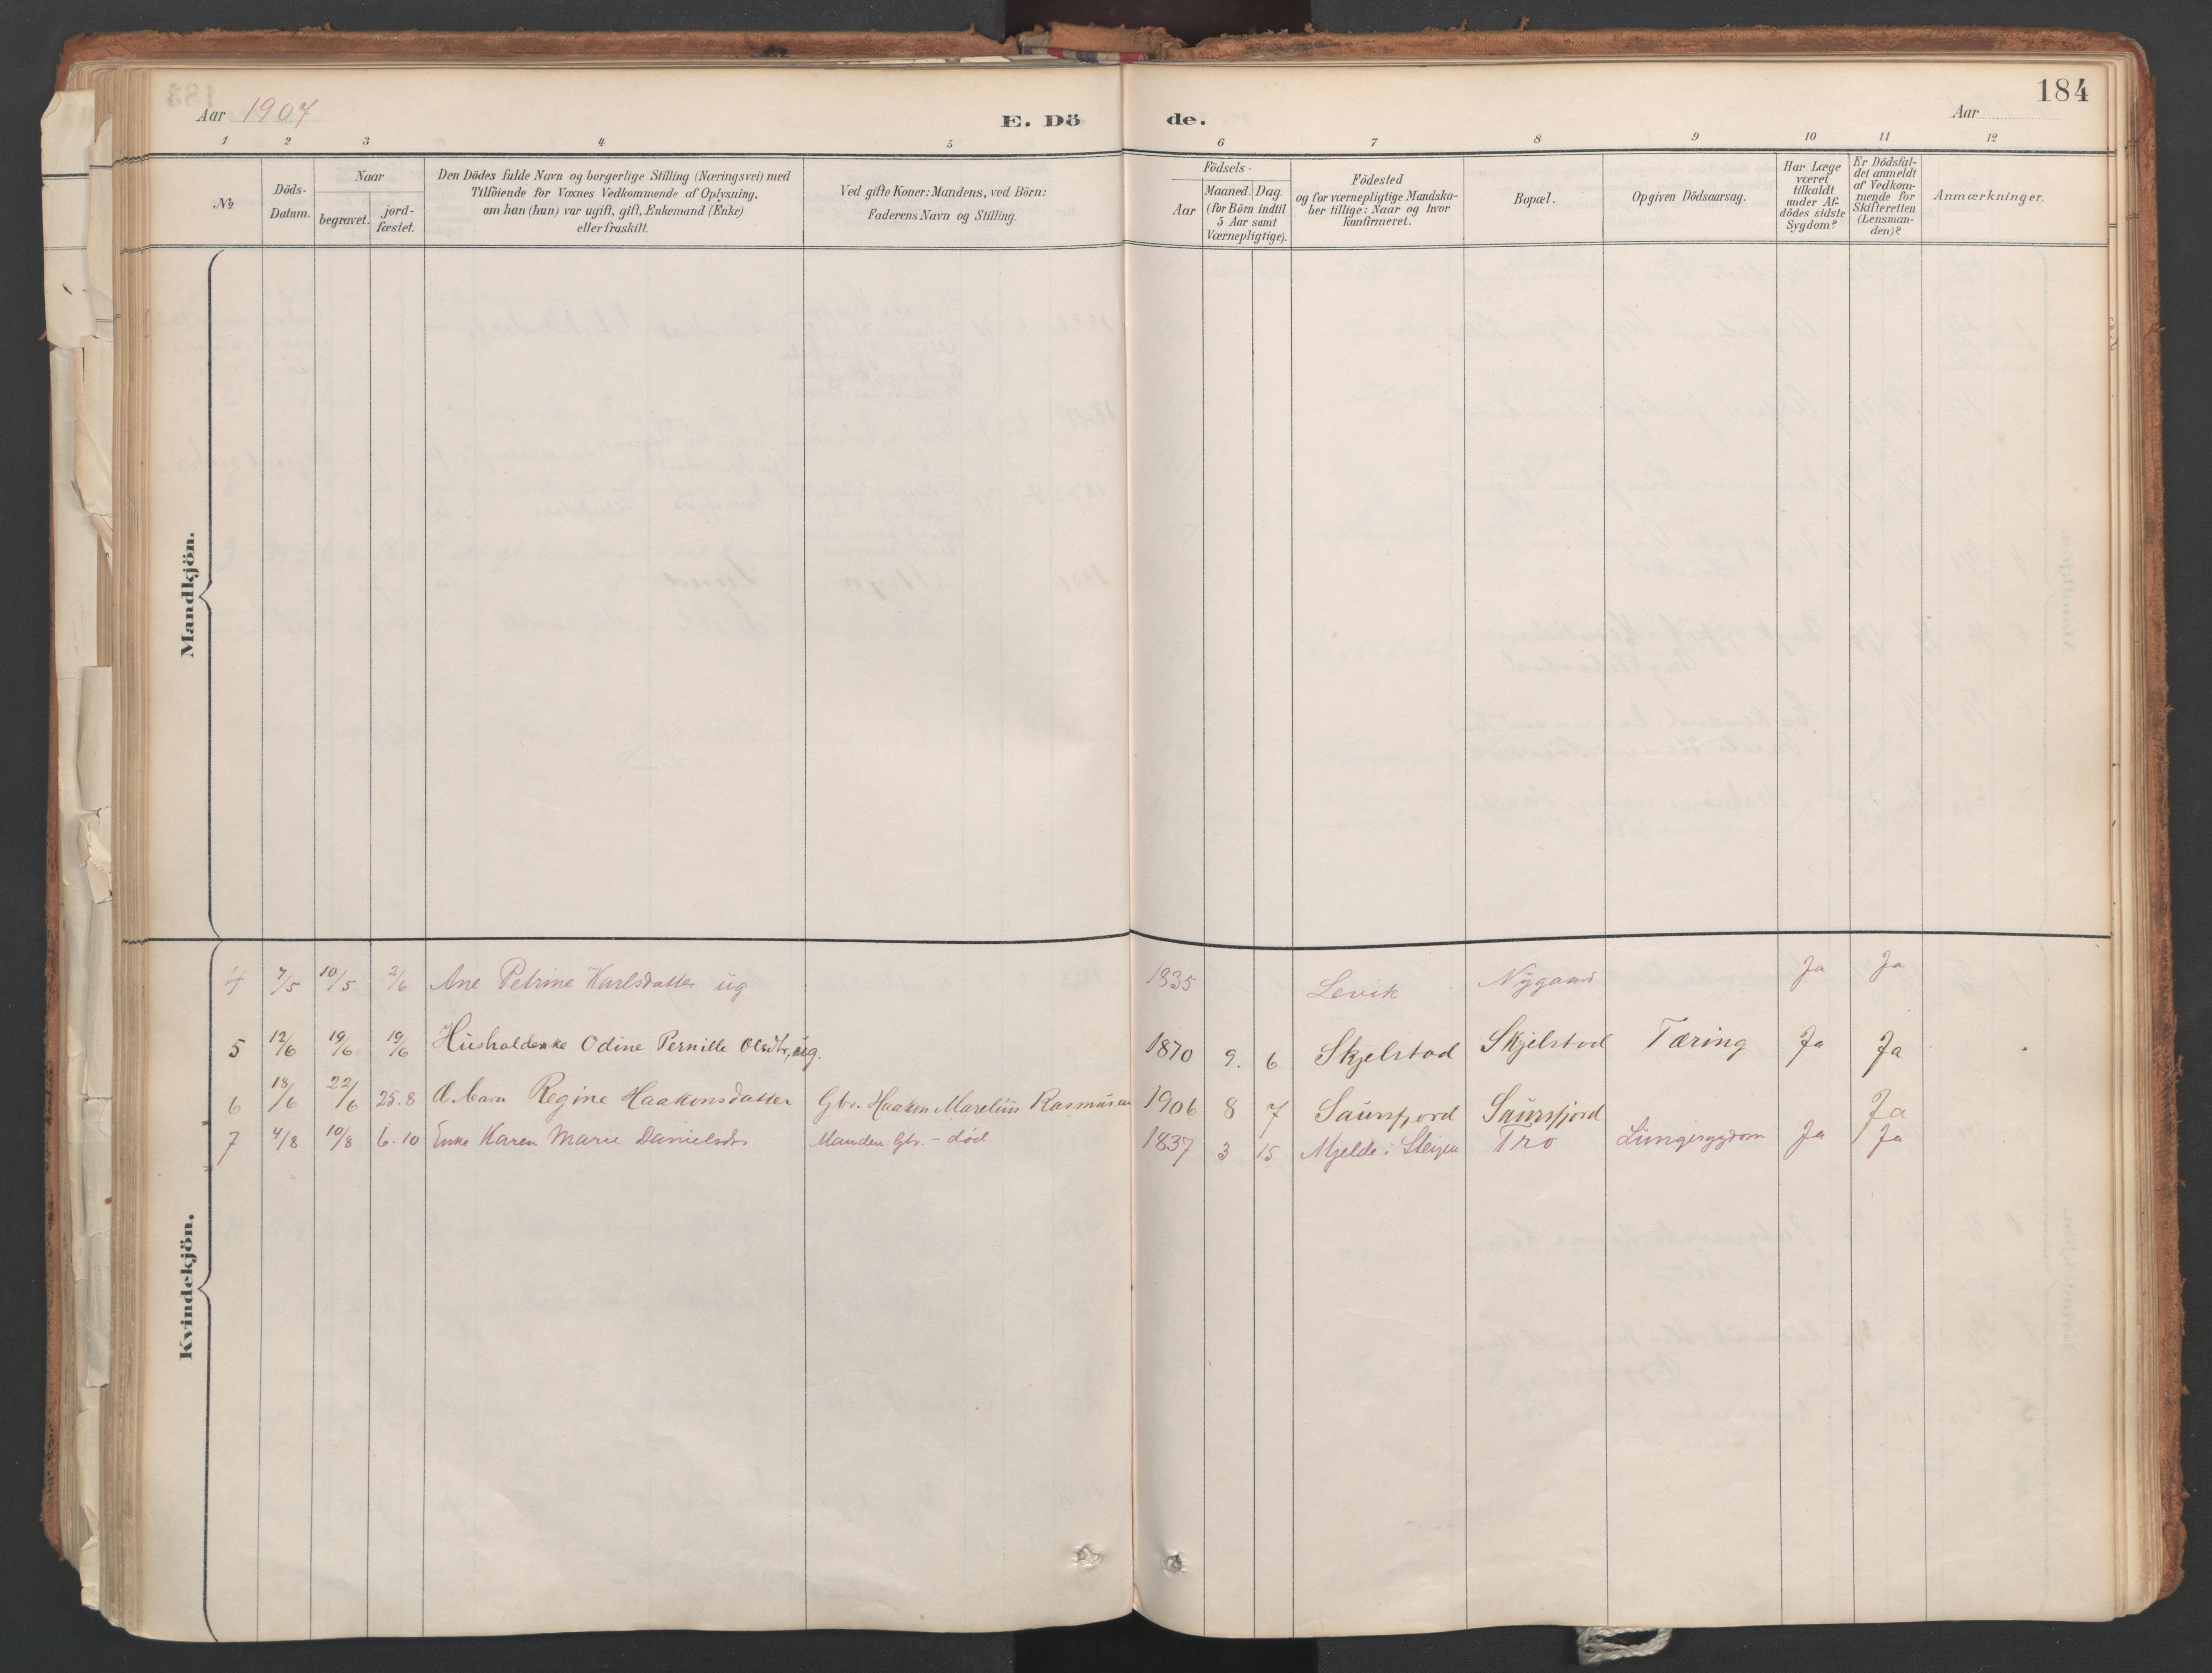 184
Aar 1907
E. Dö
de.
Aar
1 2 3 4 5 6 7 8 9 10 11 12
№
Döds-
Datum.
Naar
begravet.
jord-
fæstet.
Den Dödes fulde Navn og borgerlige Stilling (Næringsvei) med
Tilföiende for Voxnes Vedkommende af Oplysning,
om han (hun) var ugift, gift, Enkemand (Enke)
eller fraskilt.
Ved gifte Koner: Mandens, ved Börn:
Faderens Navn og Stilling.
Födsels-
Aar
Maaned. Dag.
(for Börn indtil
5 Aar samt
Værnepligtige).
Födested
og for værnepligtige Mandska-
ber tillige: Naar og hvor
konfirmeret.
Bopæl.
Opgiven Dödsaarsag.
Har Læge
været
tilkaldt
under Af-
dödes sidste
Sygdom?
Er Dödsfal-
det anmeldt
af Vedkom-
mende for
Skifteretten
(Lensman-
den)?
Anmærkninger.
Mandkjön.
Kvindekjön.
4 7/5 10/5 2/6 Ane Petrine Karlsdatter ug 1835 Levik Nygaard Ja Ja
5 12/6 19/6 19/6 Husholderske Odine Pernille Olsdtr, ug. 1870 9. 6 Skjelstad Skjelstad Tæring Ja Ja
6 18/6 22/6 25.8 Æ. barn Regine Haakonsdatter Gbr. Haakon Marelius Rasmusen 1906 8 7 Saursfjord Saursfjord Ja
7 4/8 10/8 6.10 Enke Karen Marie Danielsdr. Manden Gbr. - død 1837 3 15 Mjelde i Steigen Tro Lungesygdom Ja Ja